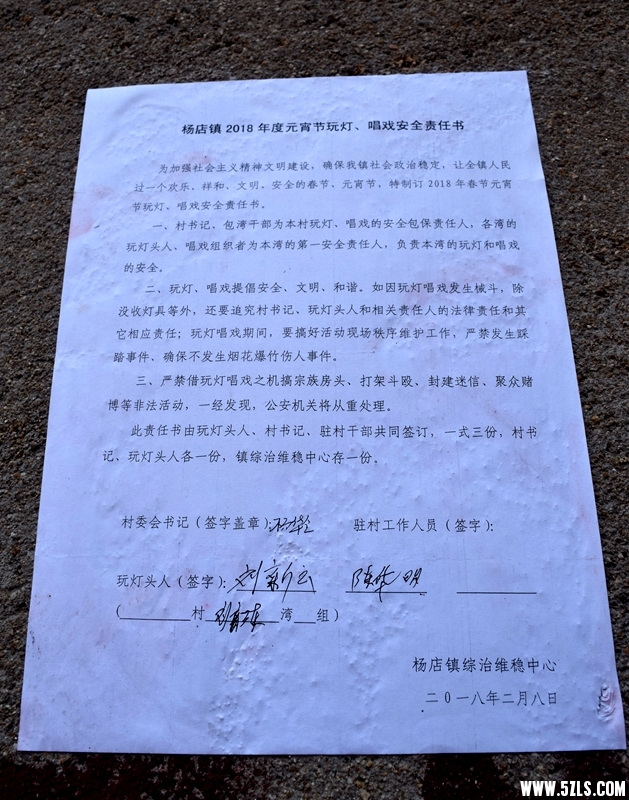 杨店镇 2018 年度元宵节玩灯、唱戏安全责任书
为加强社会主义精神文明建设，确保我镇社会政治稳定，让全镇人民
过一个欢乐、祥和、文明、安全的春节、元宵节，特制订 2018 年春节元宵
节玩灯、唱戏安全责任书。
一、村书记、包湾干部为本村玩灯、唱戏的安全包保责任人，各湾的
玩灯头人、唱戏组织者为本湾的第一安全责任人，负责本湾的玩灯和唱戏
的安全。
二、玩灯、唱戏提倡安全、文明、和谐。如因玩灯唱戏发生械斗，除
没收灯具等外，还要追究村书记、玩灯头人和相关责任人的法律责任和其
它相应责任；玩灯唱戏期间，要搞好活动现场秩序维护工作，严禁发生踩
踏事件、确保不发生烟花爆竹伤人事件。
三、严禁借玩灯唱戏之机搞宗族房头、打架斗殴、封建迷信、聚众赌
博等非法活动，一经发现，公安机关将从重处理。
此责任书由玩灯头人、村书记、驻村干部共同签订，一式三份，村书
记、玩灯头人各一份，镇综治维稳中心存一份。
村委会书记（签字盖章）： 驻村工作人员（签字）：
玩灯头人（签字）：刘新云
（ 村 湾 组）
杨店镇综治维稳中心
二〇一八年二月八日
WWW.5ZLS.COM